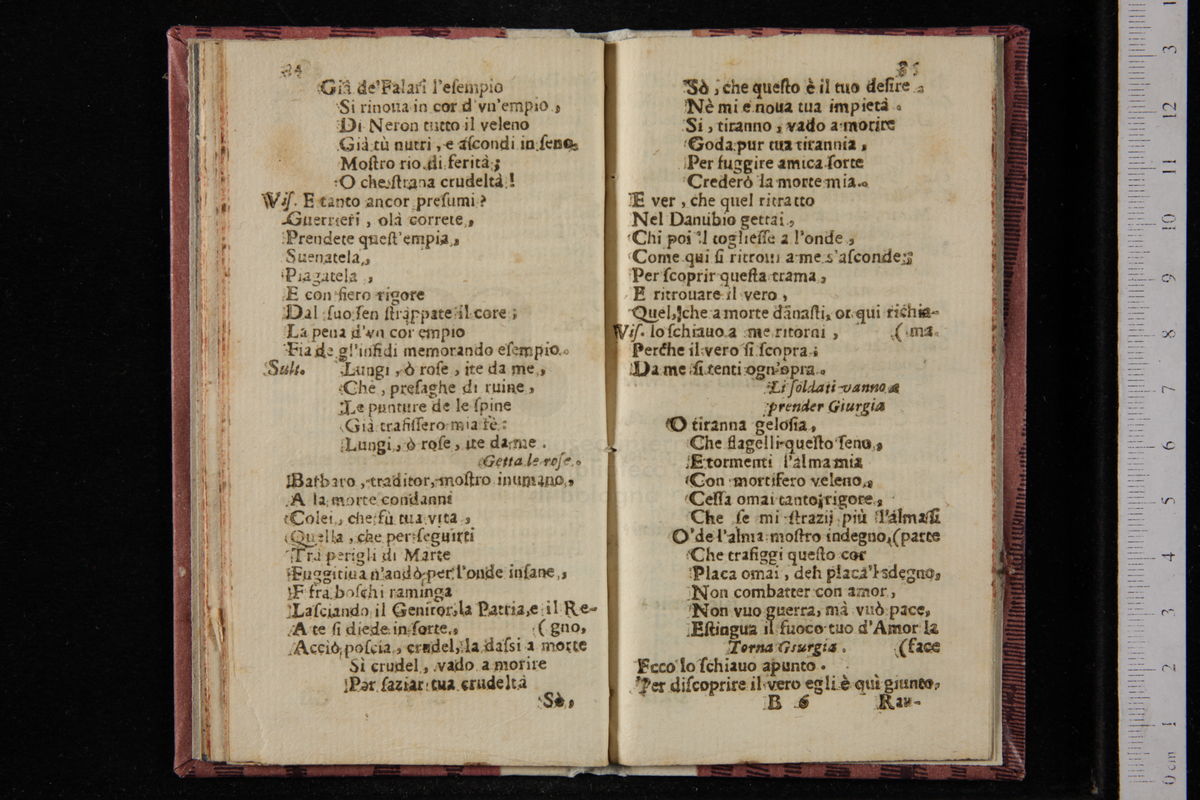 34
Già de'Falari l'eſempio
Si rinoua in cor d'vn'empio,
Di Neron tutto il veleno
Già tù nutri, e aſcondi in ſeno,
Moſtro rio di ferità;
O che ſtrana crudeltà!
Viſ. E tanto ancor preſumi?
Guerrieri, olà correte,
Prendete queſt'empia,
Suenatela,
Piagatela,
E con fiero rigore
Dal ſuo ſen ſtrappate il core;
La pena d'vn cor empio
Fia de gl'infidi memorando eſempio.
Sult. Lungi, ò roſe, ite da me,
Che, preſaghe di ruine,
Le punture de le ſpine
Già trafiſſero mia fè:
Lungi, ò roſe, ite da me.
Getta le roſe.
Barbaro, traditor, moſtro inumano,
A la morte condanni
Colei, che fù tua vita,
Quella, che per ſeguirti
Trà perigli di Marte
Fuggitiua n'andò per l'onde inſane,
E fra boſchi raminga
Laſciando il Genitor, la Patria, e il Re-
A te ſi diede in ſorte, (gno,
Acciò poſcia, crudel, la daſsi a morte
Sì crudel, vado a morire
Per ſaziar tua crudeltà
Sò,
35
Sò, che queſto è il tuo deſire.
Nè mi è noua tua impietà.
Si, tiranno, vado a morire
Goda pur tua tirannia,
Per fuggire amica ſorte
Crederò la morte mia.
E ver, che quel ritratto
Nel Danubio gettai,
Chi poi il toglieſſe a l'onde,
Come qui ſi ritroui a me s'aſconde;
Per ſcoprir queſta trama,
E ritrouare il vero,
Quel, che a morte dānaſti, or qui richia-
Viſ. lo ſchiauo a me ritorni, (ma.
Perche il vero ſi ſcopra;
Da me ſi tenti ogn'opra.
Li ſoldati vanno a
prender Giurgia
O tiranna geloſia,
Che flagelli queſto ſeno,
E tormenti l'alma mia
Con mortifero veleno,
Ceſſa omai tanto rigore,
Che ſe mi ſtrazij più l'alma ſi
O'de l'alma moſtro indegno, (parte
Che trafiggi queſto cor
Placa omai, deh placa'l sdegno,
Non combatter con amor,
Non vuo guerra, mà vuò pace,
Eſtingua il fuoco tuo d'Amor la
Torna Giurgia. (face
Ecco lo ſchiauo apunto.
Per diſcoprire il vero egli è quì giunto,
B 6 Rau-